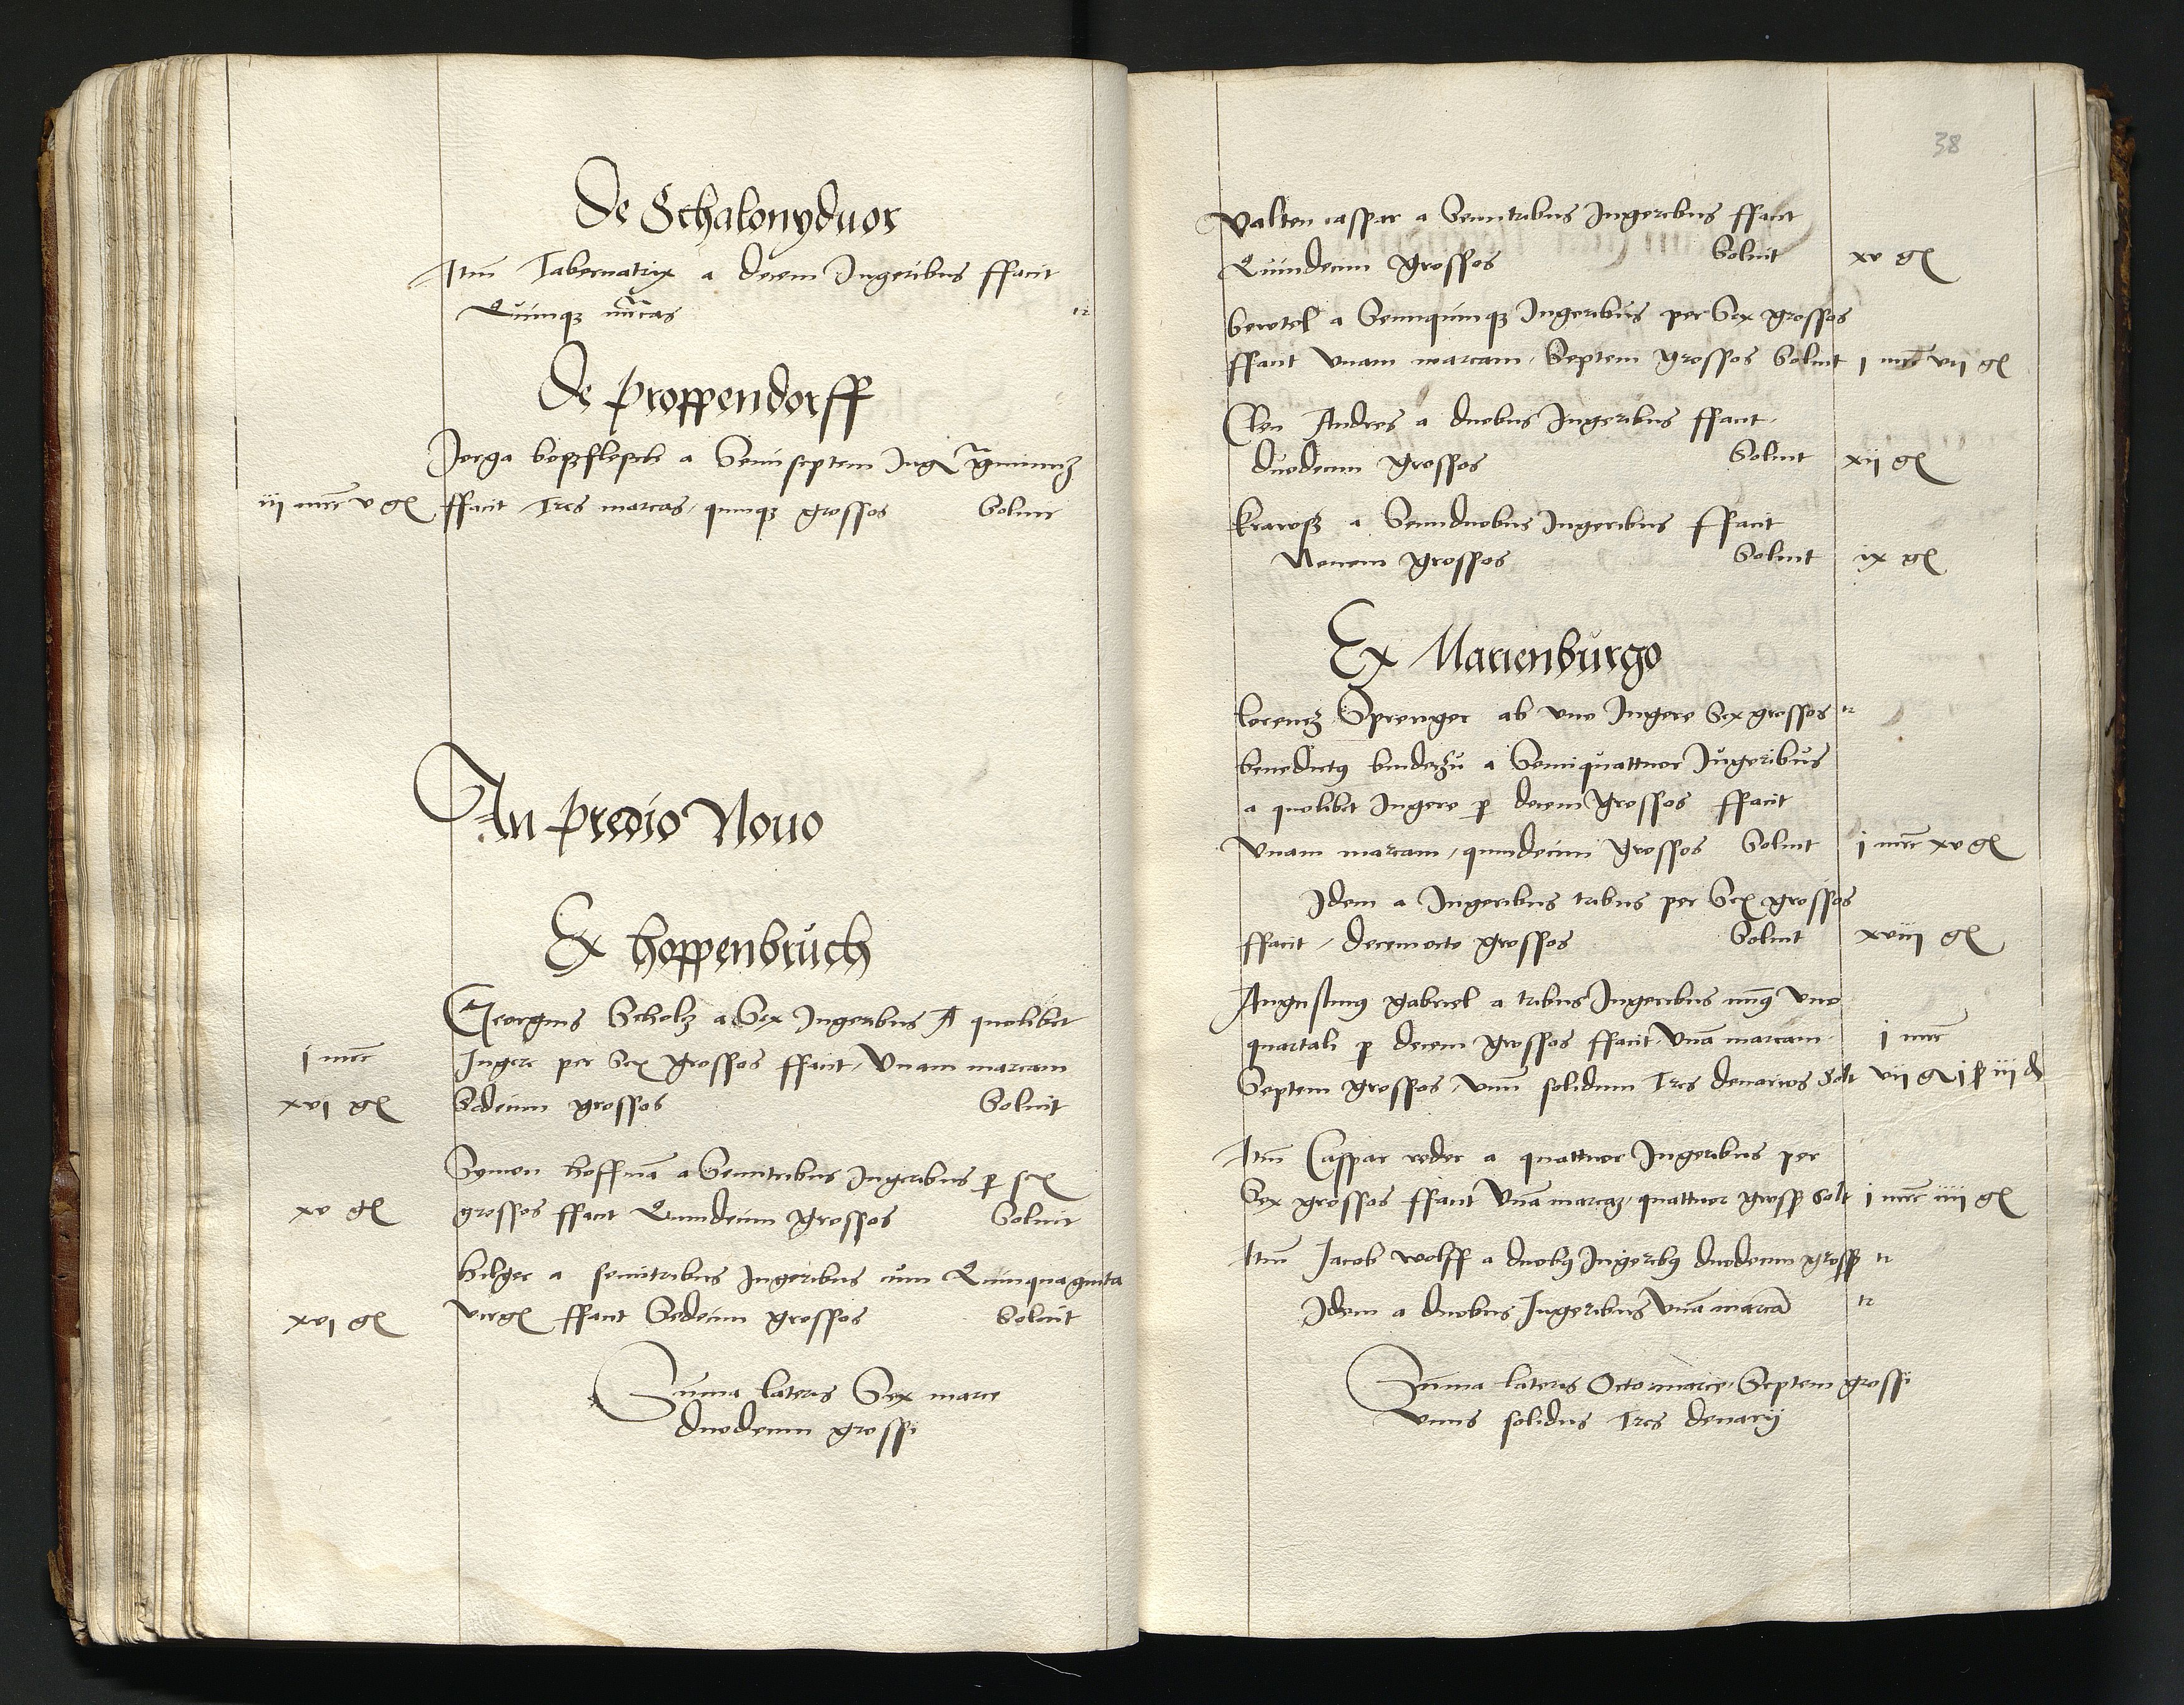 De Schalonyduor
Itm Tabernatrix a decem Jugeribus ffacit
Quinqz mrcas tz
De proppendorff
Jorga boßflesch a Semiseptem Jug
iij mrc v gl ffacit Tres marcas, quinqz grossos Soluit
An predio Nouo
Ex hoppenbruch
Georgius Scholz a Sex Jugeribus A quolibet
j mrc Jugere per Sex grossos ffacit, Vnam marcam
xvj gl Sedecim grossos Soluit
Symon hoffmā a Semitribus Jugeribus p sex
xv gl grossos ffacit Quindecim grossos Soluit
hilger a semitribus Jugeribus cum Quinquaginta
xvj gl virgl ffacit Sedecim grossos Soluit
Suma lateris Sex marce
duodecim grossi
38
Valten caspar a Semitribus Jugeribus ffacit
Quindecim grossos Soluit xv gl
bertel a Semiquinqz Jugeribus per Sex grossos
ffacit Vnam marcam, Septem grossos Soluit j mrc vij gl
Clen Andres a duobus Jugeribus ffacit
duodecim grossos Soluit xij gl
krawsz a Semiduobus Jugeribus ffacit
Nouem grossos Soluit ix gl
Ex Marienburgo
lorencz Sprenger ab vno Jugere Sex grossos tz
benedictus a Semiquattuor Jugeribus
a quolibet Jugere p decem grossos ffacit
Vnam marcam, quindecim grossos Soluit j mrc xv gl
Idem a Jugeribus tribus per Sex grossos
ffacit, decemocto grossos Soluit xviij gl
Augustinus gabriel a tribus Jugeribus vno
quartali p decem grossos ffacit Vnā marcam j mrc
Septem grossos, vnū solidum Tres denarios Solt vij g j ß iij d
Itm Caspar reder a quattuor Jugeribus per
Sex grossos ffacit Vnā marcaz, quattuor gross Solt j mrc iiij gl
Itm Jacob wolff a duobus Jugeribus duodecim gross tz
Idem a duobus Jugeribus Vnā marcā tz
Suma lateris Octo marce, Septem grossi
vnus solidus Tres denarij